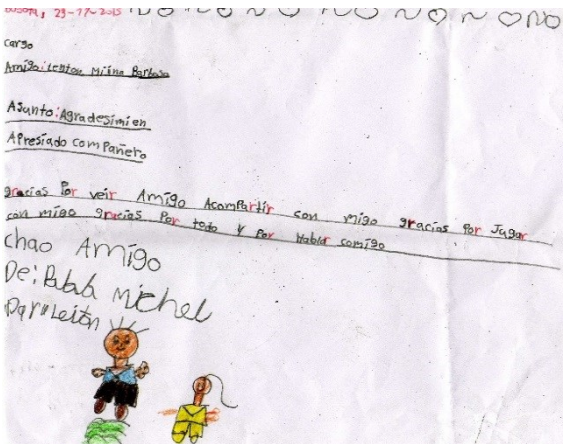 cargo
Amigo: Leiton Miina Barbosa
Asunto: Agradesimien
Apresiado compañero
gracias Por veir Amigo Acompartir con migo gracias Por Jugar
con migo gracias Por todo y Por Hablar comigo
chao Amigo
De: Michel
Para Leiton